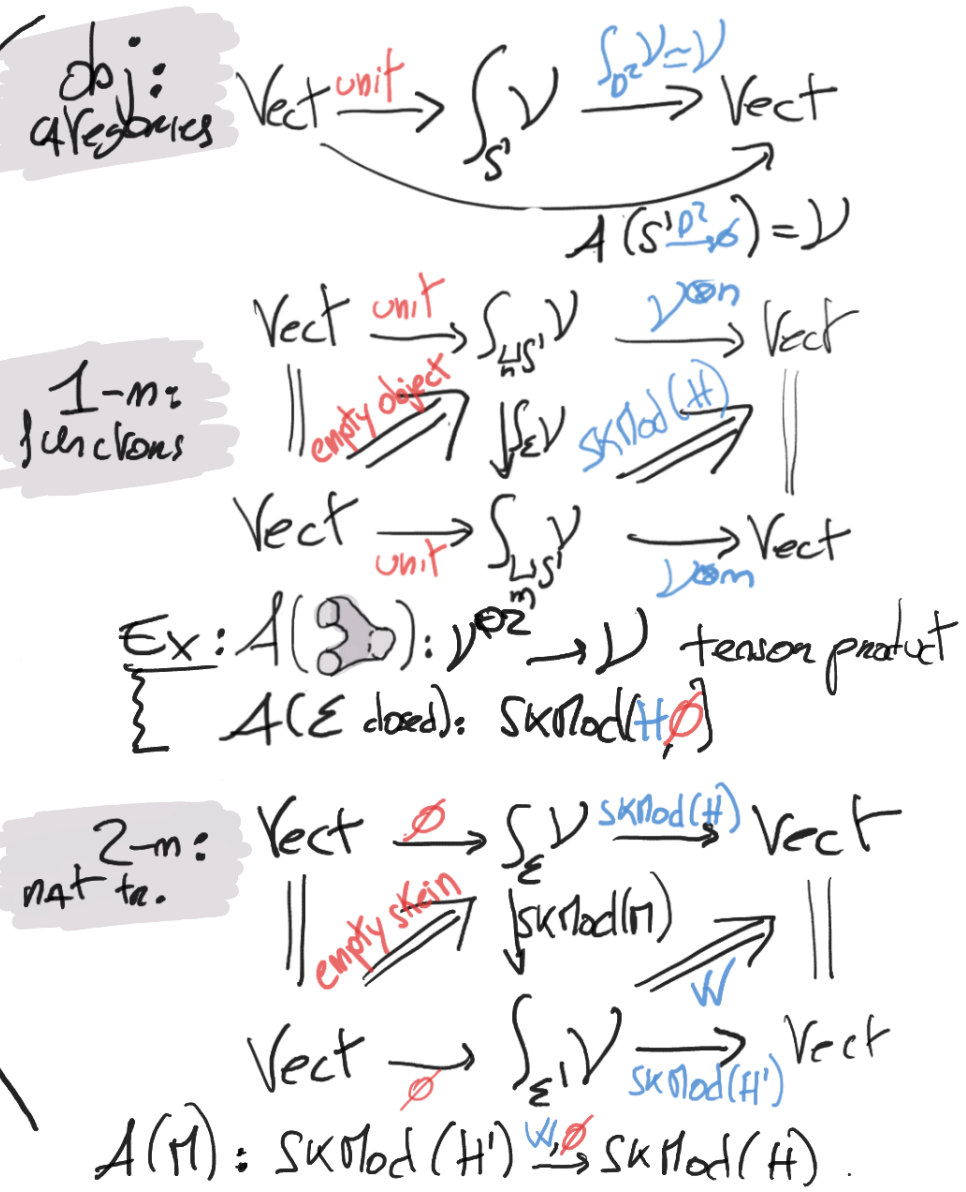 obj:
categories
Vect unit → ∫_{S¹} 𝒱 ∫_{D²}𝒱≃𝒱 → Vect
A (S¹ D²→ ∅) = 𝒱
Vect unit → ∫_{⊔_n S¹} 𝒱 𝒱^{⊗n} → Vect
1-m:
functions
empty object ↓∫_Σ 𝒱 SKMod(H)
Vect → unit ∫_{⊔_m S¹} 𝒱 → 𝒱^{⊗m} Vect
Ex: A( ): 𝒱^{⊗2} → 𝒱 tensor product
A(Σ closed): SKMod(H,∅)
2-m:
nat tr.
Vect ∅ → ∫_Σ 𝒱 SKMod(H) → Vect
empty skein ↓SKMod(M) W
Vect → ∅ ∫_{Σ'} 𝒱 → SKMod(H') Vect
A(M): SKMod(H') W,∅ → SKMod(H).